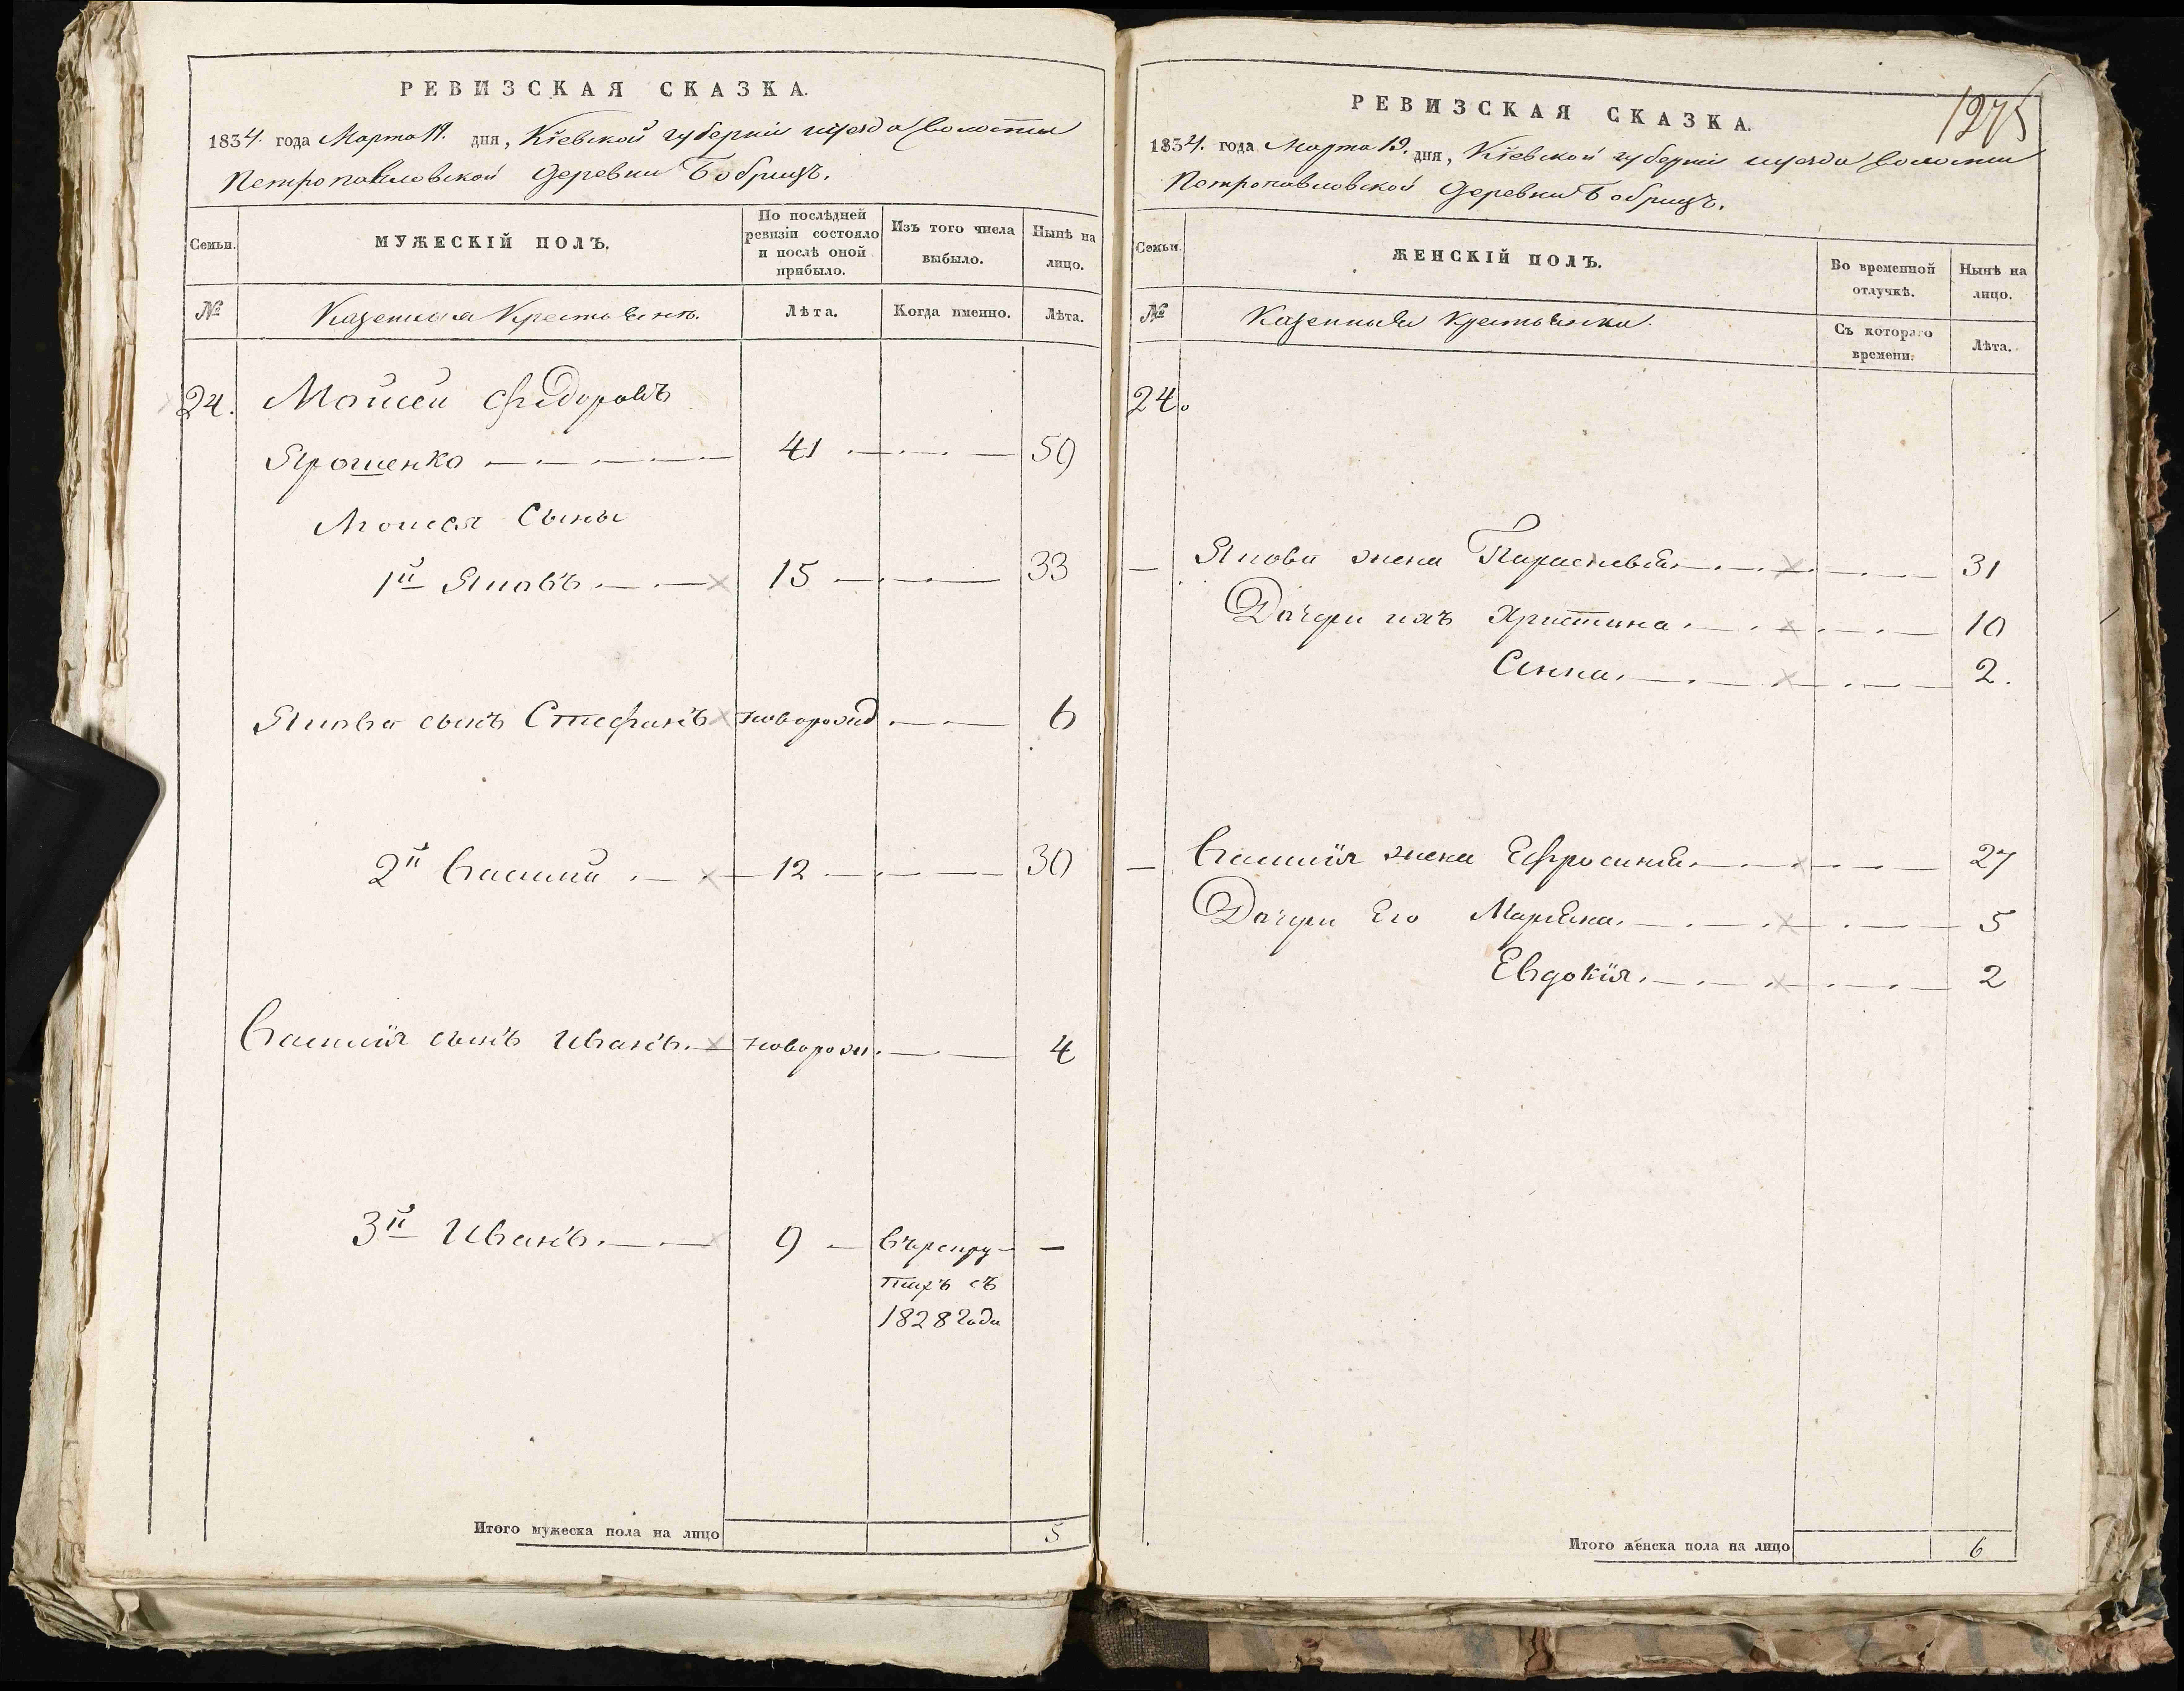 РЕВИЗСКАЯ СКАЗКА.
1834. года Марта 19. дня, Кіевской губерніи уѣзда Волости
Петропавловской деревни Бобрицъ.
Семьи.
МУЖЕСКІЙ ПОЛЪ.
По послѣдней ревизіи состояло и послѣ оной прибыло.
Изъ того числа выбыло.
Нынѣ на лицо.
№
Казенныя Крестьяне.
Лѣта.
Когда именно.
Лѣта.
24. Мойсей Федоровъ
Ярошенко 41 59
Моисея Сыны
1й Яковъ 15 33
Якова сынъ Стефанъ новорожд 6
2й Василий 12 30
Василія сынъ Иванъ новорож. 4
3й Иванъ 9 въ рекру-
тахъ съ
1828 года
Итого мужеска пола на лицо 5
1275
РЕВИЗСКАЯ СКАЗКА.
1834. года Марта 19. дня, Кіевской губерніи уѣзда Волости
Петропавловской деревни Бобрицъ.
Семьи.
ЖЕНСКІЙ ПОЛЪ.
Во временной отлучкѣ.
Нынѣ на лицо.
№
Казенныя Крестьянки.
Съ котораго времени.
Лѣта.
24.
Якова жена Параскевія 31
Дочери ихъ Христина 10
Анна 2.
Василія жена Ефросинія 27
Дочери Его Маріяна 5
Евдокія 2
Итого женска пола на лицо 6